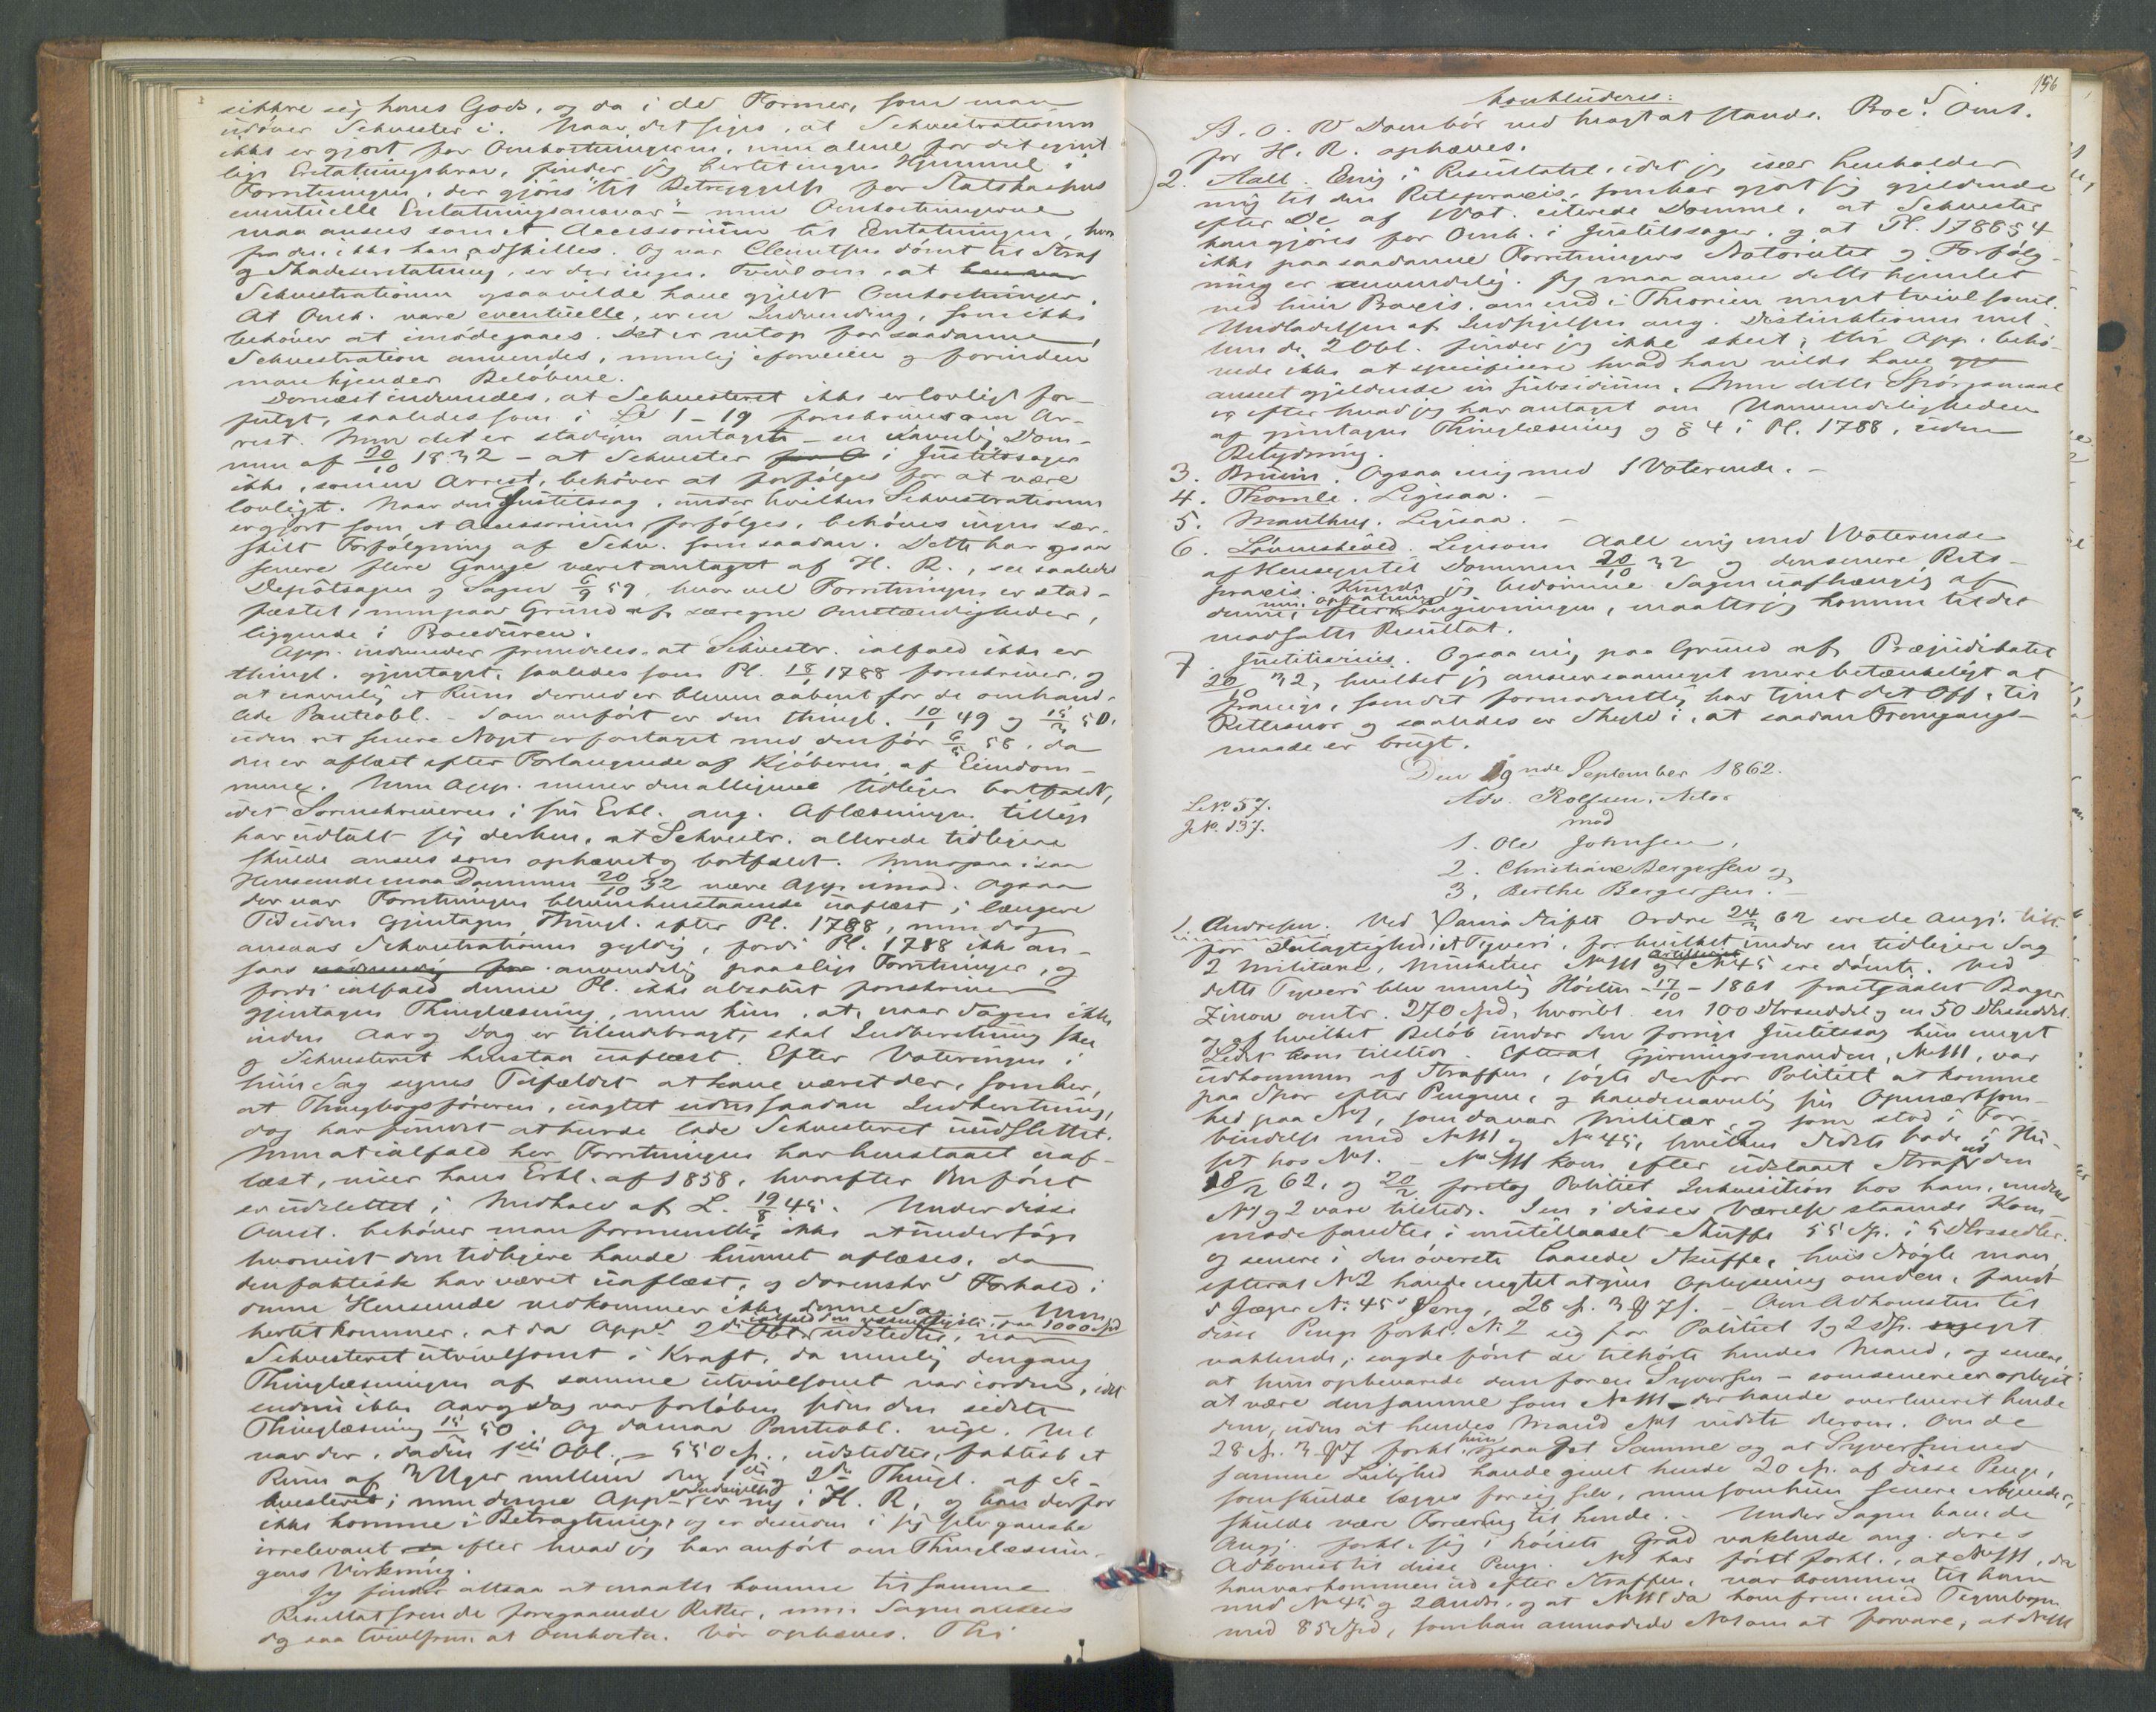 sikkre sig hans Gods, og da i de Former, som man
udöver Sekvester i. Naar det siges, at Sekvestrationen
ikke er gjort for Omkostningerne, men alene for det egent
lige Erstatningskrav, finder jeg hertil ingen Hjemmel i
Forretningen, der gjöres "til Betryggelse for Statskassens
eventuelle Erstatningsansvar" - men Omkostningerne
maa ansees som et Accessorium til Erstatningen, hvor
fra den ikke kan adskilles. Og var Clemetsen dömt til Straf
og Skadeserstatning, er der ingen Tvivl om, at
Sekvestrationen ogsaa vilde have gjeldt Omkostninger.
At Omk. vare eventuelle, er en Indvending, som ikke
behöver at imödegaaes. Det er netop for saadanne,
Sekvestration anvendes, nemlig iforveien og forinden
man kjender Belöbene.
Dernæst indvendes, at Sekvesteret ikke er lovligt for-
fulgt, saaledes som i L 1 - 19 foreskrives om Ar-
rest. Men det er stadigen antaget - en navnlig Dom-
men af 20/10 1832 - at Sekvester i Justitssager
ikke, som en Arrest, behöver at forfölges for at være
lovligt. Naar den Justitssag, under hvilken Sekvestrationen
er gjort som et Accessorium forfölges, behöves ingen sær-
skilt Forfölgning af Sekv. som saadan. Dette har ogsaa
senere flere Gange været antaget af H. R., se saaledes
Depôtsagen og Sagen 6/9 59, hvor vel Forretningen er stad-
fæstet, men paa Grund af særegne Omstændigheder,
liggende i Proceduren.
App. indvender fremdeles at Sekvestr. ialfald ikke er
thingl. gjentaget, saaledes som Pl. 18/1 1788 foreskriver, og
at navnlig et Rum derved er bleven aabent for de omhand-
lede Panteobl. - Som anfört er den thingl. 10/1 49 og 15/2 50,
uden at senere Noget er foretaget med den för 6/5 58, da
den er aflæst efter Forlangende af Kjöberen af Eiendom-
mene. Men App. mener den alligevel tidligere bortfaldt,
idet Sorenskriveren i sin Erkl. ang. Aflæsningen tillige
har udtalt sig derhen, at Sekvestr. allerede tidligere
skulde ansees som ophævet og bortfaldt. Men ogsaa i saa
Henseende maa Dommen 20/10 32 være App. imod. Ogsaa
der var Forretningen bleven henstaaende uaflæst i længere
Tid uden gjentagen Thingl. efter Pl. 1788, men dog
ansaas Sekvestrationen gyldig, fordi Pl. 1788 ikke an-
saas anvendelig paa slige Forretninger, og
fordi ialfald denne Pl. ikke absolut foreskriver
gjentagen Thinglæsning, men kun, at, naar Sagen ikke
inden Aar og Dag er tilendebragt, skal Indberetning skee
og Sekvesteret henstaa uaflæst. Efter Voteringen i
hiin Sag synes Tilfældet at have været der, som her,
at Thingbogsföreren, uagtet uden saadan Indberetning,
dog har formeent at burde lade Sekvesteret udslettet.
Men at ialfald her Forretningen har henstaaet uaf-
læst, viser hans Erkl. af 1858, hvorefter Anfört
er udslettet i Medhold af L. 19/8 45. Under disse
Omst. behöver man formeentlig ikke at undersöge
hvorvidt den tidligere havde kunnet aflæses, da
den faktisk har været uaflæst, og Sorenskr.s Forhold i
denne Henseende vedkommer ikke denne Sag. - Men
hertil kommer, at da App.s 2den Obl. ialfald den væsentligste, paa 1000 Spd. udstedtes, var
Sekvesteret utvivlsomt i Kraft, da nemlig dengang
Thinglæsningen af samme utvivlsomt var iorden, idet
endnu ikke Aar og Dag var forlöben siden den sidste
Thinglæsning 15/2 50. Og da maa Panteobl. vige. Vel
var der, da den 1ste Obl., 550 Sp., udstedtes, faktisk et
Rum af 3 Uger mellem den 1ste og 2den Thingl. af Se-
kvesteret; men denne App. er ny i H. R., og kan derfor
ikke komme i Betragtning, og er desuden i sig selv ganske
irrelevant efter hvad jeg har anfört om Thinglæsnin-
gens Virkning.
Jeg finder altsaa at maatte komme til samme
Resultat som de foregaaende Retter, men Sagen ansees
dog saa tvivlsom, at Omkostn. bör ophæves. Thi
156
konkluderes:
S. O. R Dom bör ved Magt at stande. Proc.s Omk.
for H. R. ophæves.
2. Aall. Enig i Resultatet, idet jeg især henholder
mig til den Retspraxis, som har gjort sig gjeldende
efter De af 1 Vot. citerede Domme, at Sekvester
kan gjöres for Omk. i Justitssager, og at Pl. 1788 § 4
ikke paa saadanne Forretningers Notoritet og Forfölg-
ning er anvendelig. Jeg maa ansee dette hjemlet
ved hiin Praxis, om end i Theorien meget tvivlsomt.
Undladelsen af Indsigelsen ang. Distinktionen mel-
lem de 2 Obl. finder jeg ikke skeet; thi App. behö-
vede ikke at specificere hvad han vilde have
anseet gjeldende in subsidium. Men dette Spörgsmaal
er efter hvad jeg har antaget om Uanvendeligheden
af gjentagen Thinglæsning og § 4 i Pl. 1788, uden
Betydning.
3. Bruun. Ogsaa enig med 1 Voterende. -
4. Thomle. Ligesaa. -
5. Manthey. Ligesaa. -
6. Lövenskiold. Ligesom Aall enig med 1 Voterende
af Hensyn til Dommen 20/10 32 og den senere Rets-
praxis. Kunde jeg bedömme Sagen uafhængig af
denne, efter Lovgivningen, maatte jeg komme til det
modsatte Resultat.
7. Justitiarius. Ogsaa enig paa Grund af Præjudikatet
20/10 32, hvilket jeg anseer saameget mere betænkeligt at
fravige, som det formodentlig har tjent det Off. til
Rettesnor og saaledes er Skyld i, at saadan Fremgangs-
maade er brugt.
Den 19nde September 1862.
L. No. 57.
J. No. 137.
Adv. Rolfsen, Aktor
mod
1. Ole Johnsen,
2. Christiane Bergersen og
3. Berthe Bergersen. -
1. Andresen. Ved Xania Stifts Ordre 24/3 62 ere de Angj. tilt.
for Delagtighed i et Tyveri, for hvilket under en tidligere Sag
2 Militære, Musketeer No 111 og Artillerist No 45 ere dömte. Ved
dette Tyveri blev nemlig Hösten - 17/10 - 1861 frastjaalet Bager
Zinow omtr. 270 Spd., hvoribl. en 100 Dlrseddel og en 50 Dlrseddel
og af hvilket Belöb under den forrige Justitssag kun meget
Lidet kom tilstede. Efterat Gjerningsmanden, No 111, var
udkommen af Straffen, sögte derfor Politiet at komme
paa Spor efter Pengene, og havde navnlig sin Opmærksom-
hed paa No 1, som da var Militær, og som stod i For-
bindelse med No 111 og No 45, hvilken Sidste bode i Hu-
set hos No 1. - No 111 kom efter udstaaet Straf ud den
18/2 62, og 20/2 foretog Politiet Inkvisition hos ham, medens
No 1 og 2 vare tilstede. I en i disses Værelse staaende Kom-
mode fandtes i en utillaaset Skuffe 55 Sp. i 5 Dlrsedler.
og senere i den överste laasede Skuffe, hvis Nögle man,
efterat No 2 havde negtet at give Oplysning om den, fandt
i Jæger No 45s Seng, 28 Sp. 3 # 7 s. - Om Adkomsten til
disse Penge forkl. No 2 sig for Politiet 1 og 2 meget
vaklende; sagde först de tilhörte hendes Mand, og senere,
at hun opbevarede dem for en Syversen - som senere er oplyst
at være den samme som No 111 - der havde overleveret hende
dem, uden at hendes Mand No 1 vidste derom. Om de
28 Sp. 3 # 7 forkl. hun ogsaa det Samme og at Syversen ved
samme Leilighed havde givet hende 20 Sp. af disse Penge,
som skulde lægges for sig selv, men som hun senere erkjender,
skulde være Foræring til hende. - Under Sagen have de
Angj. forkl. sig i höieste Grad vaklende ang. deres
Adkomst til disse Penge. No 1 har först forkl., at No 111, da
han var kommen ud efter Straffen, var kommen til ham
med No 45 og 2 Andre, og at No 111 da kom frem med Tegnebogen
med 85 Spd., som han anmodede No 1 om at forvare, at No 111